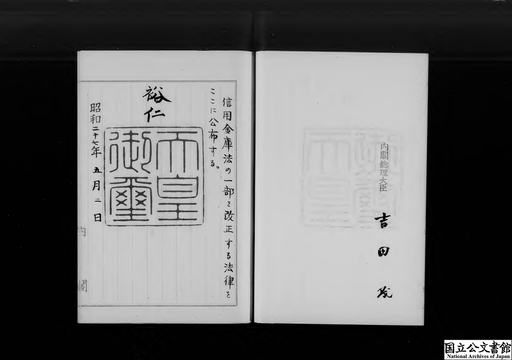 信用金庫法の一部を改正する法律を
ここに公布する。
裕仁
天皇
御璽
昭和二十七年 五月二日
内閣
内閣総理大臣
吉田茂
国立公文書館
National Archives of Japan